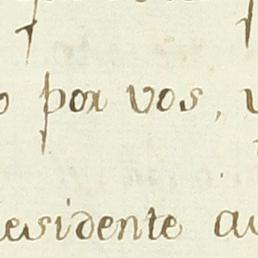 por vos,
residente a